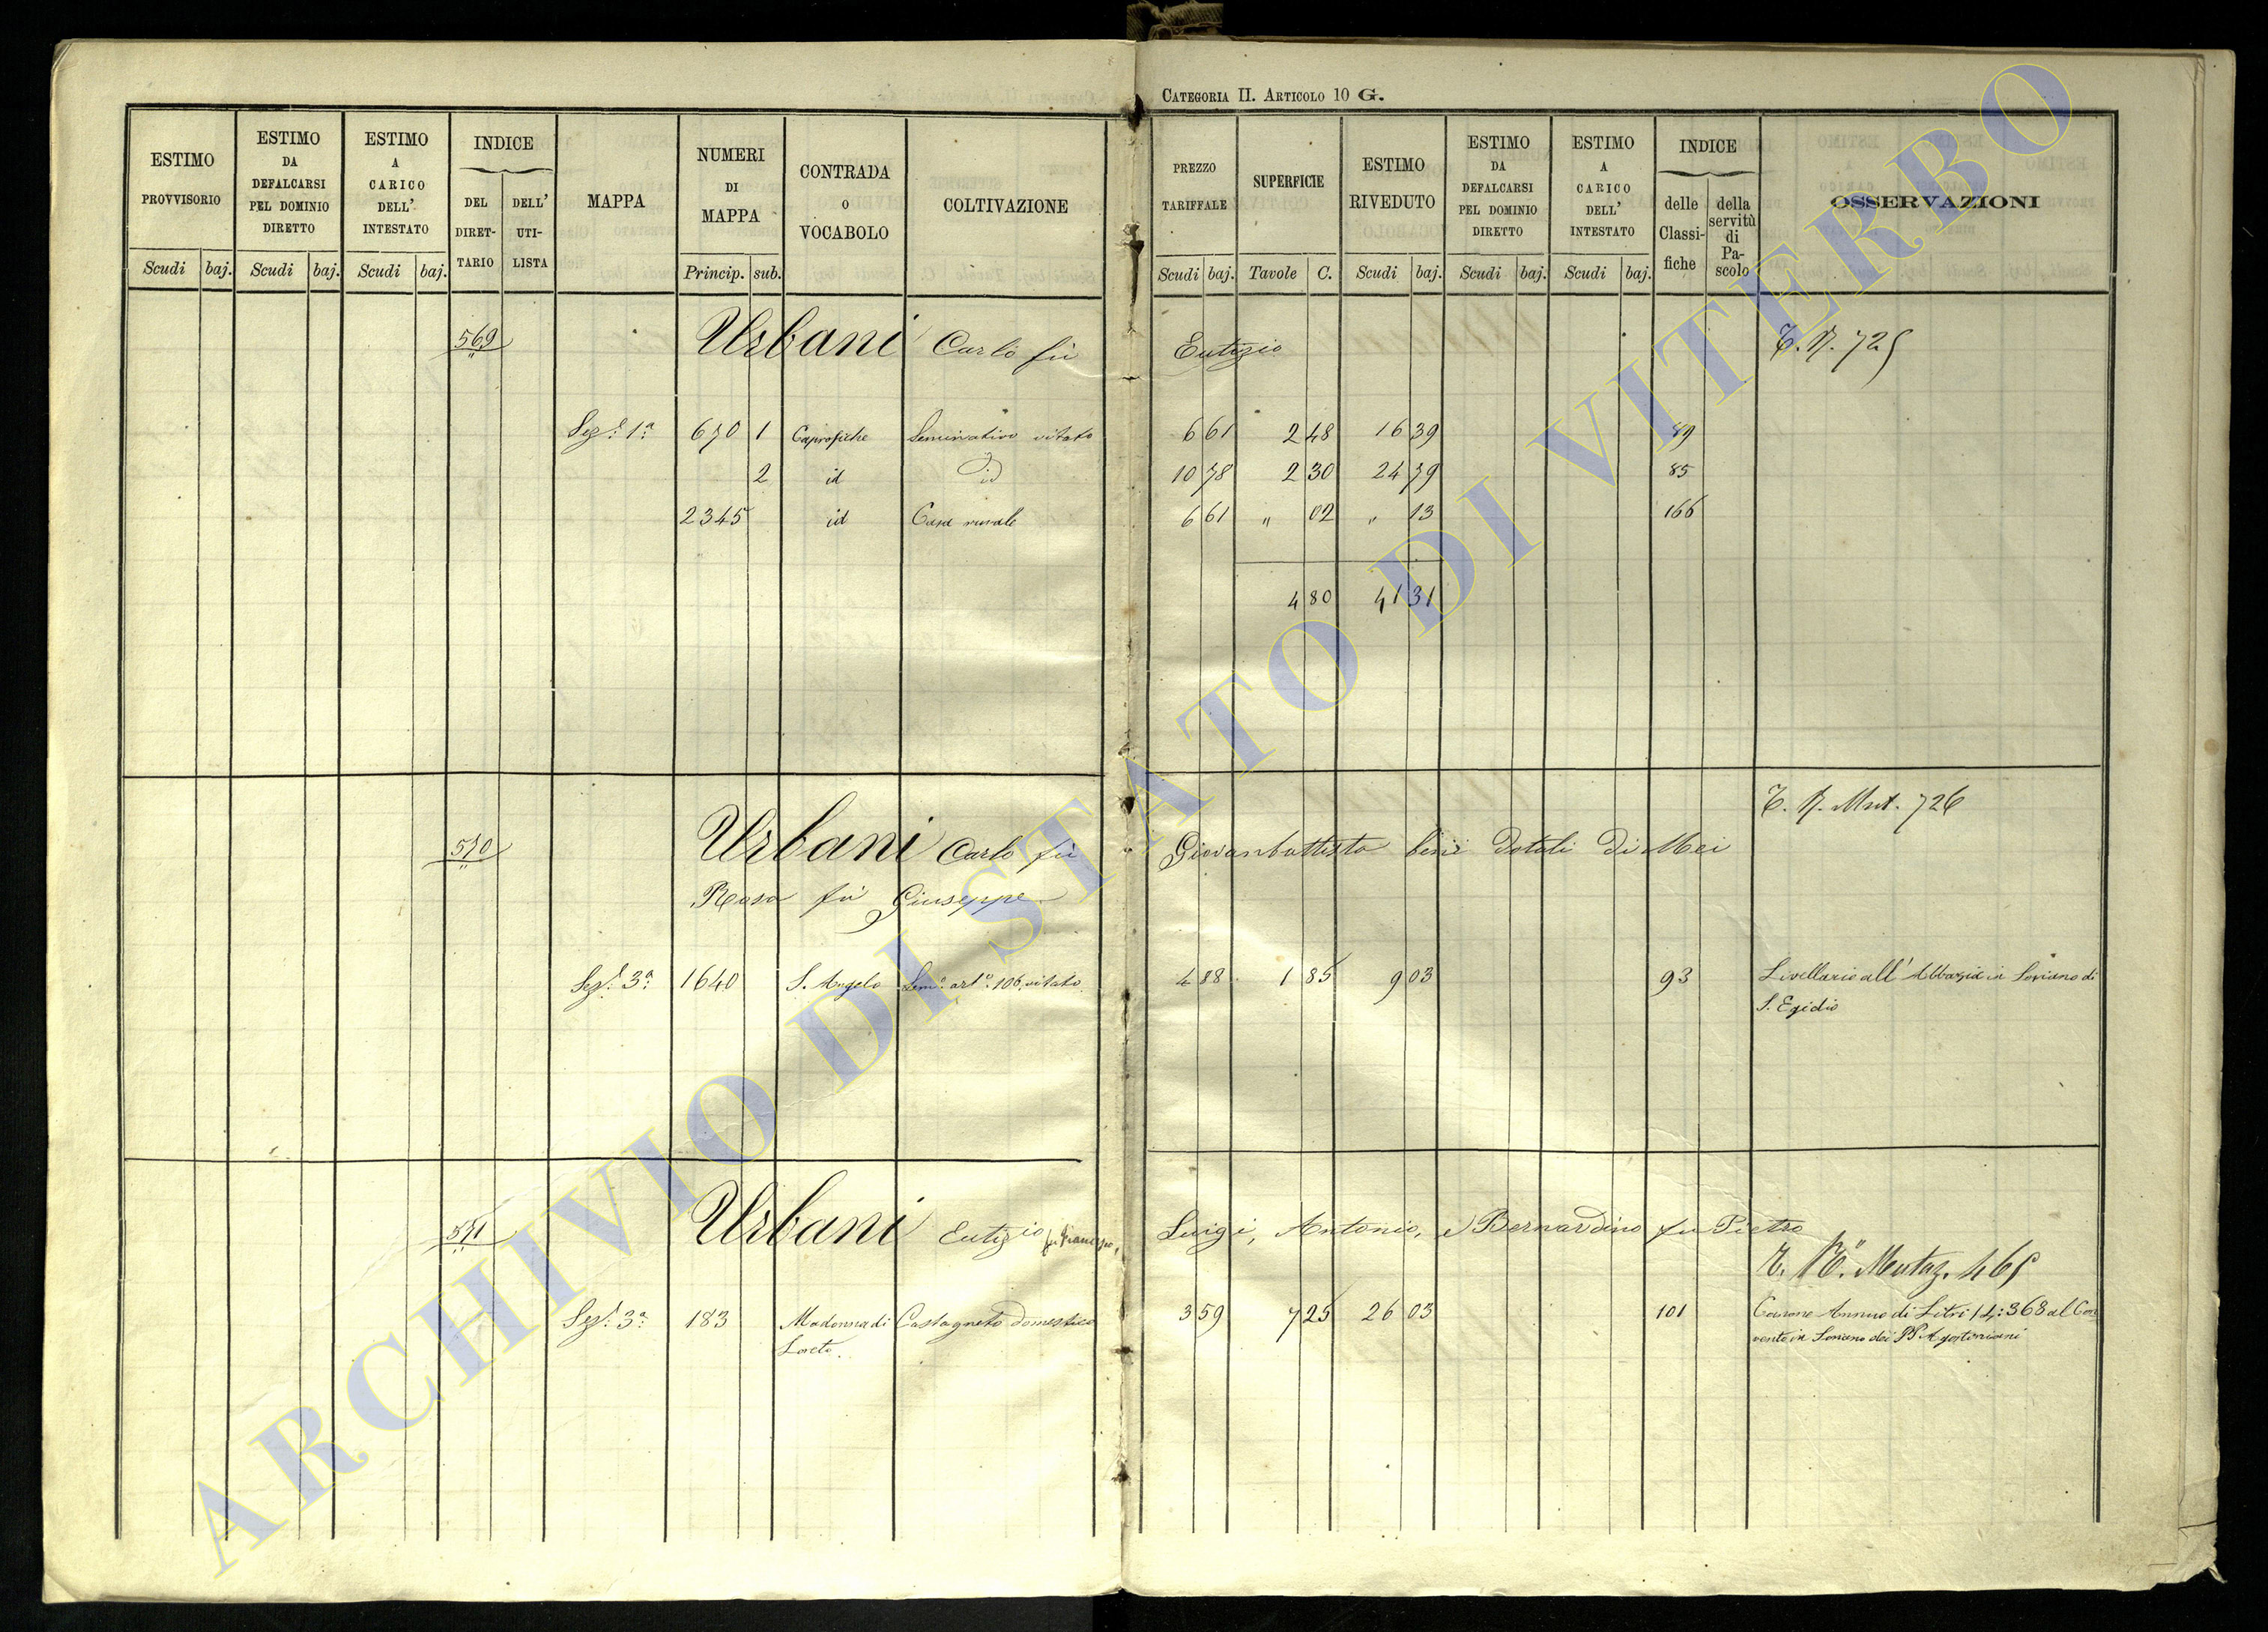 CATEGORIA II. ARTICOLO 10 G.
ESTIMO PROVVISORIO Scudi baj.
ESTIMO DA DEFALCARSI PEL DOMINIO DIRETTO Scudi baj.
ESTIMO A CARICO DELL' INTESTATO Scudi baj.
INDICE DEL DIRET-TARIO DELL' UTI-LISTA
MAPPA
NUMERI DI MAPPA Princip. sub.
CONTRADA O VOCABOLO
COLTIVAZIONE
PREZZO TARIFFALE Scudi baj.
SUPERFICIE Tavole C.
ESTIMO RIVEDUTO Scudi baj.
ESTIMO DA DEFALCARSI PEL DOMINIO DIRETTO Scudi baj.
ESTIMO A CARICO DELL' INTESTATO Scudi baj.
INDICE delle Classi-fiche della servitù di Pa-scolo
OSSERVAZIONI
569 Urbani Carlo fu Eutizio 725
Sez.e 1a 670 1 Caprofiche Seminativo vitato 6 61 2 48 16 39 89
2 id id 10 78 2 30 24 79 85
2345 id Casa rurale 6 61 " 02 " 13 166
4 80 41 31
Mut. 726
570 Urbani Carlo fu Giovanbattista beni dotali di Mei
Rosa fu Giuseppe
Sez.e 3a 1640 S. Angelo Sem.o art.o 106 vitato 4 88 1 85 9 03 93 Livellario all' Abbazia in Soriano di
S. Egidio
571 Urbani Eutizio fu Francesco, Luigi, Antonio, e Bernardino fu Pietro
Mutaz. 465
Sez.e 3a 183 Madonna di Castagneto domestico 3 59 7 25 26 03 101 Canone Annuo di Litri 14:368 al Con
Loreto vento in Soriano dei PP Agostiniani
ARCHIVIO DI STATO DI VITERBO